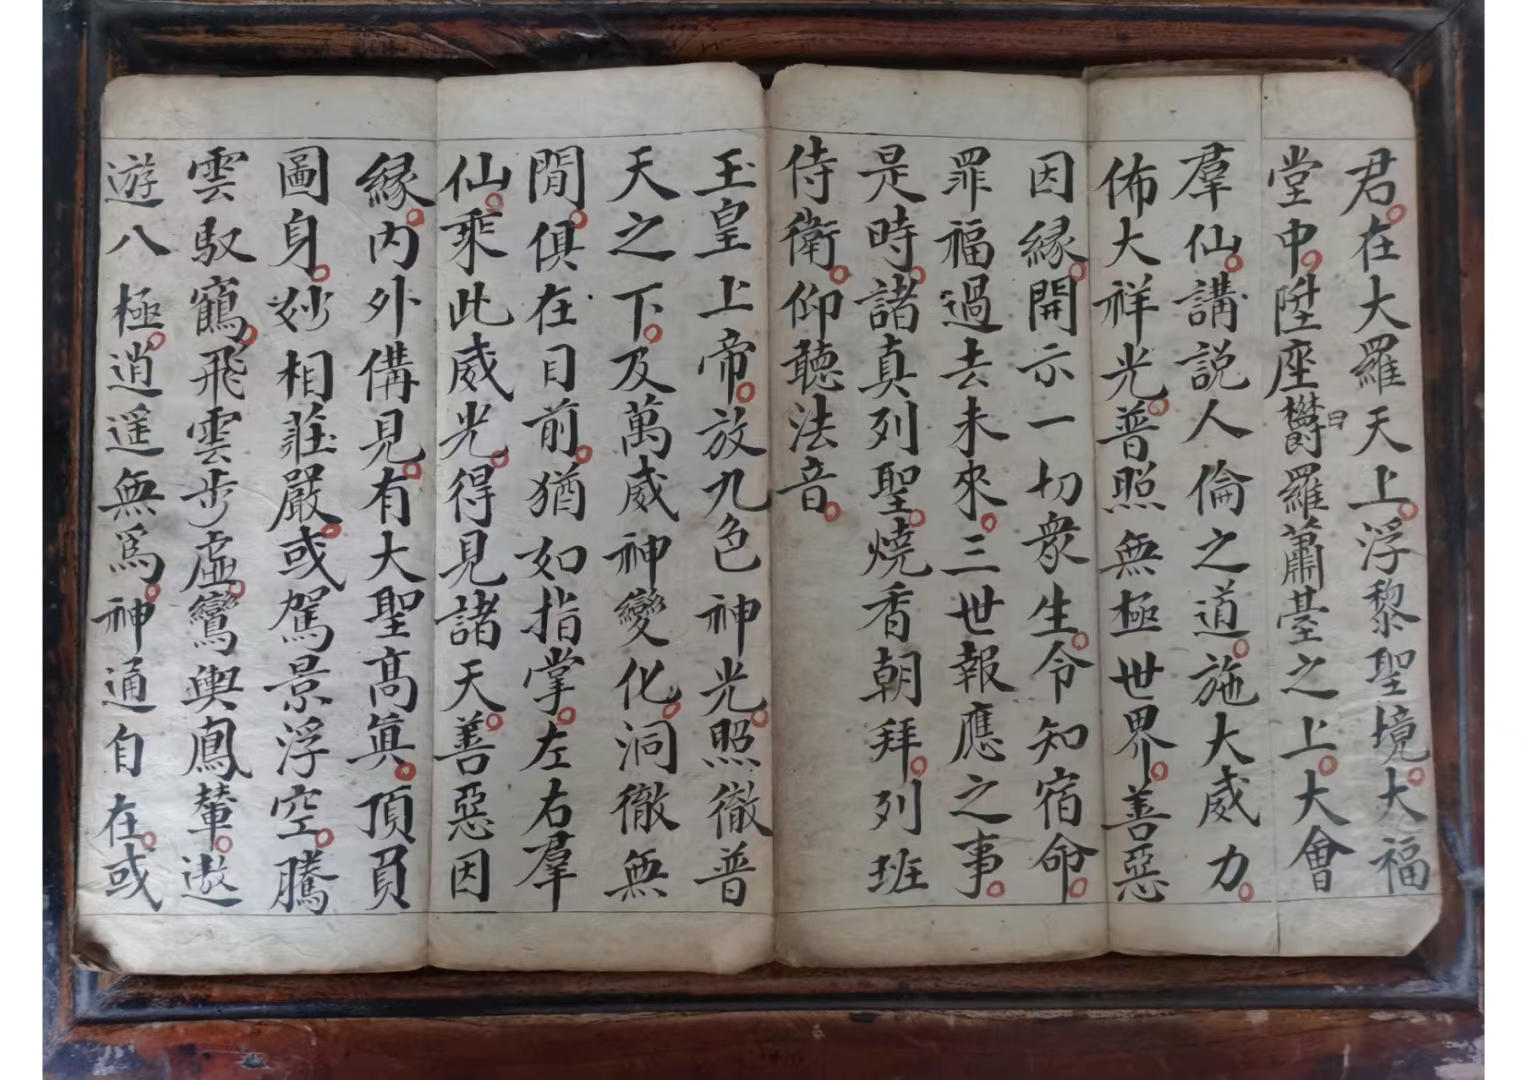 君。在大羅天上。浮黎聖境。大福
堂中。陞座欝曰羅蕭臺之上。大會
羣仙。講説人倫之道。施大威力。
佈大祥光。普照無極世界。善惡
因縁。開示一切衆生。令知宿命。
罪福過去未來。三世報應之事。
是時。諸真列聖。燒香朝拜。列班
侍衛。仰聽法音。
玉皇上帝。放九色神光。照徹普
天之下。及萬威神變化。洞徹無
閒。俱在目前。猶如指掌。左右羣
仙。乘此威光。得見諸天。善惡因
縁。内外備見。有大聖髙眞。頂負
圖身。妙相莊嚴。或駕景浮空。騰
雲馭鶴。飛雲步虛。鸞輿鳳輦。遨
遊八極。逍遥無爲。神通自在。或